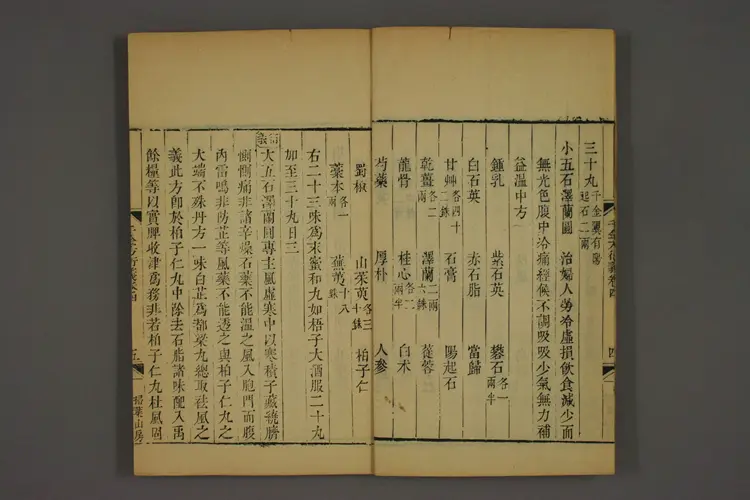 三十丸千金翼有陽起石二兩
小五石澤蘭圓　治婦人勞冷虛損飲食減少面
無光色腹中冷痛經候不調吸吸少氣無力補
益溫中方
鍾乳　紫石英　礬石各一兩半
白石英　赤石脂　當歸
甘艸各四十二銖　石膏　陽起石
乾薑各二兩　澤蘭二兩六銖　蓯蓉
龍骨　桂心各二兩半　白朮
芍藥　厚朴　人參
蜀椒　山茱萸各三十銖　柏子仁
藁本各一兩　蕪荑十八銖
右二十三味爲末蜜和丸如梧子大酒服二十丸
加至三十丸日三
衍義大五石澤蘭圓專主風虛寒中以寒積子藏繞臍
惻惻痛非諸辛燥石藥不能溫之風入胞門而腹
內雷鳴非防芷等風藥不能透之與柏子仁丸之
大端不殊丹方一味白芷爲都梁丸總取祛風之
義此方卽於柏子仁丸中除去石脂諸味配入禹
餘糧等以實脾收津爲務非若柏子仁丸杜風固
千金方衍義卷四
四
五
掃葉山房